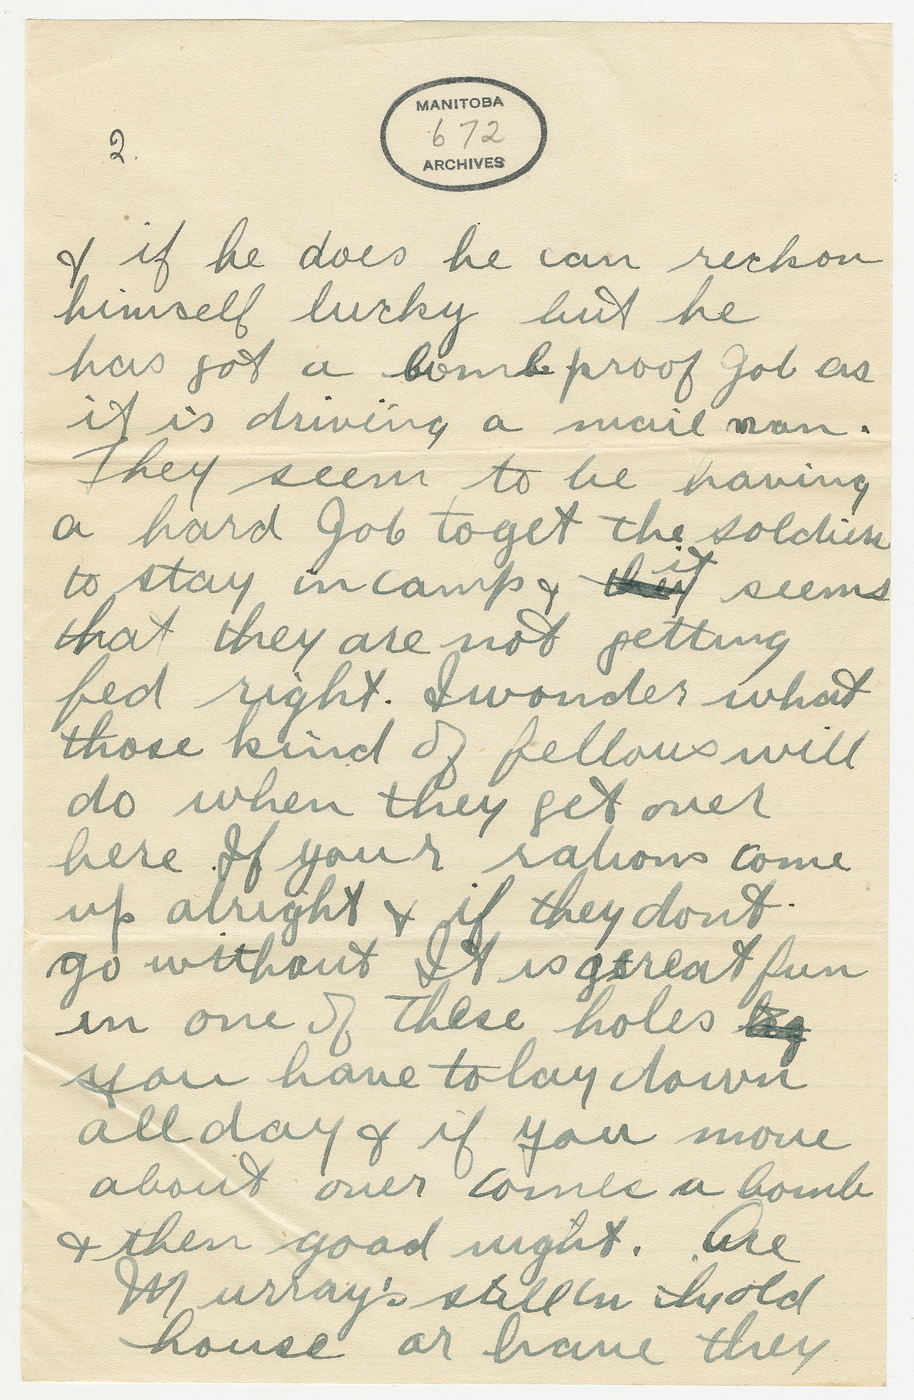 2.
MANITOBA
672
ARCHIVES
& if he does he can reckon
himself lucky but he
has got a bomb proof Job as
it is driving a mail van.
They seem to be having
a hard Job to get the soldiers
to stay in camp & it seems
that they are not getting
fed right. I wonder what
those kind of fellows will
do when they get over
here. If your rations come
up alright & if they dont
go without It is great fun
in one of these holes
you have to lay down
all day & if you move
about over comes a bomb
& then good night. Are
Murray's still in the old
house or have they